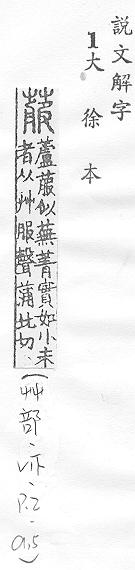 說文解字
1大徐本
菔蘆菔似蕪菁實如小尗者从艸服聲蒲北切
(艸部、p.2、a.5)